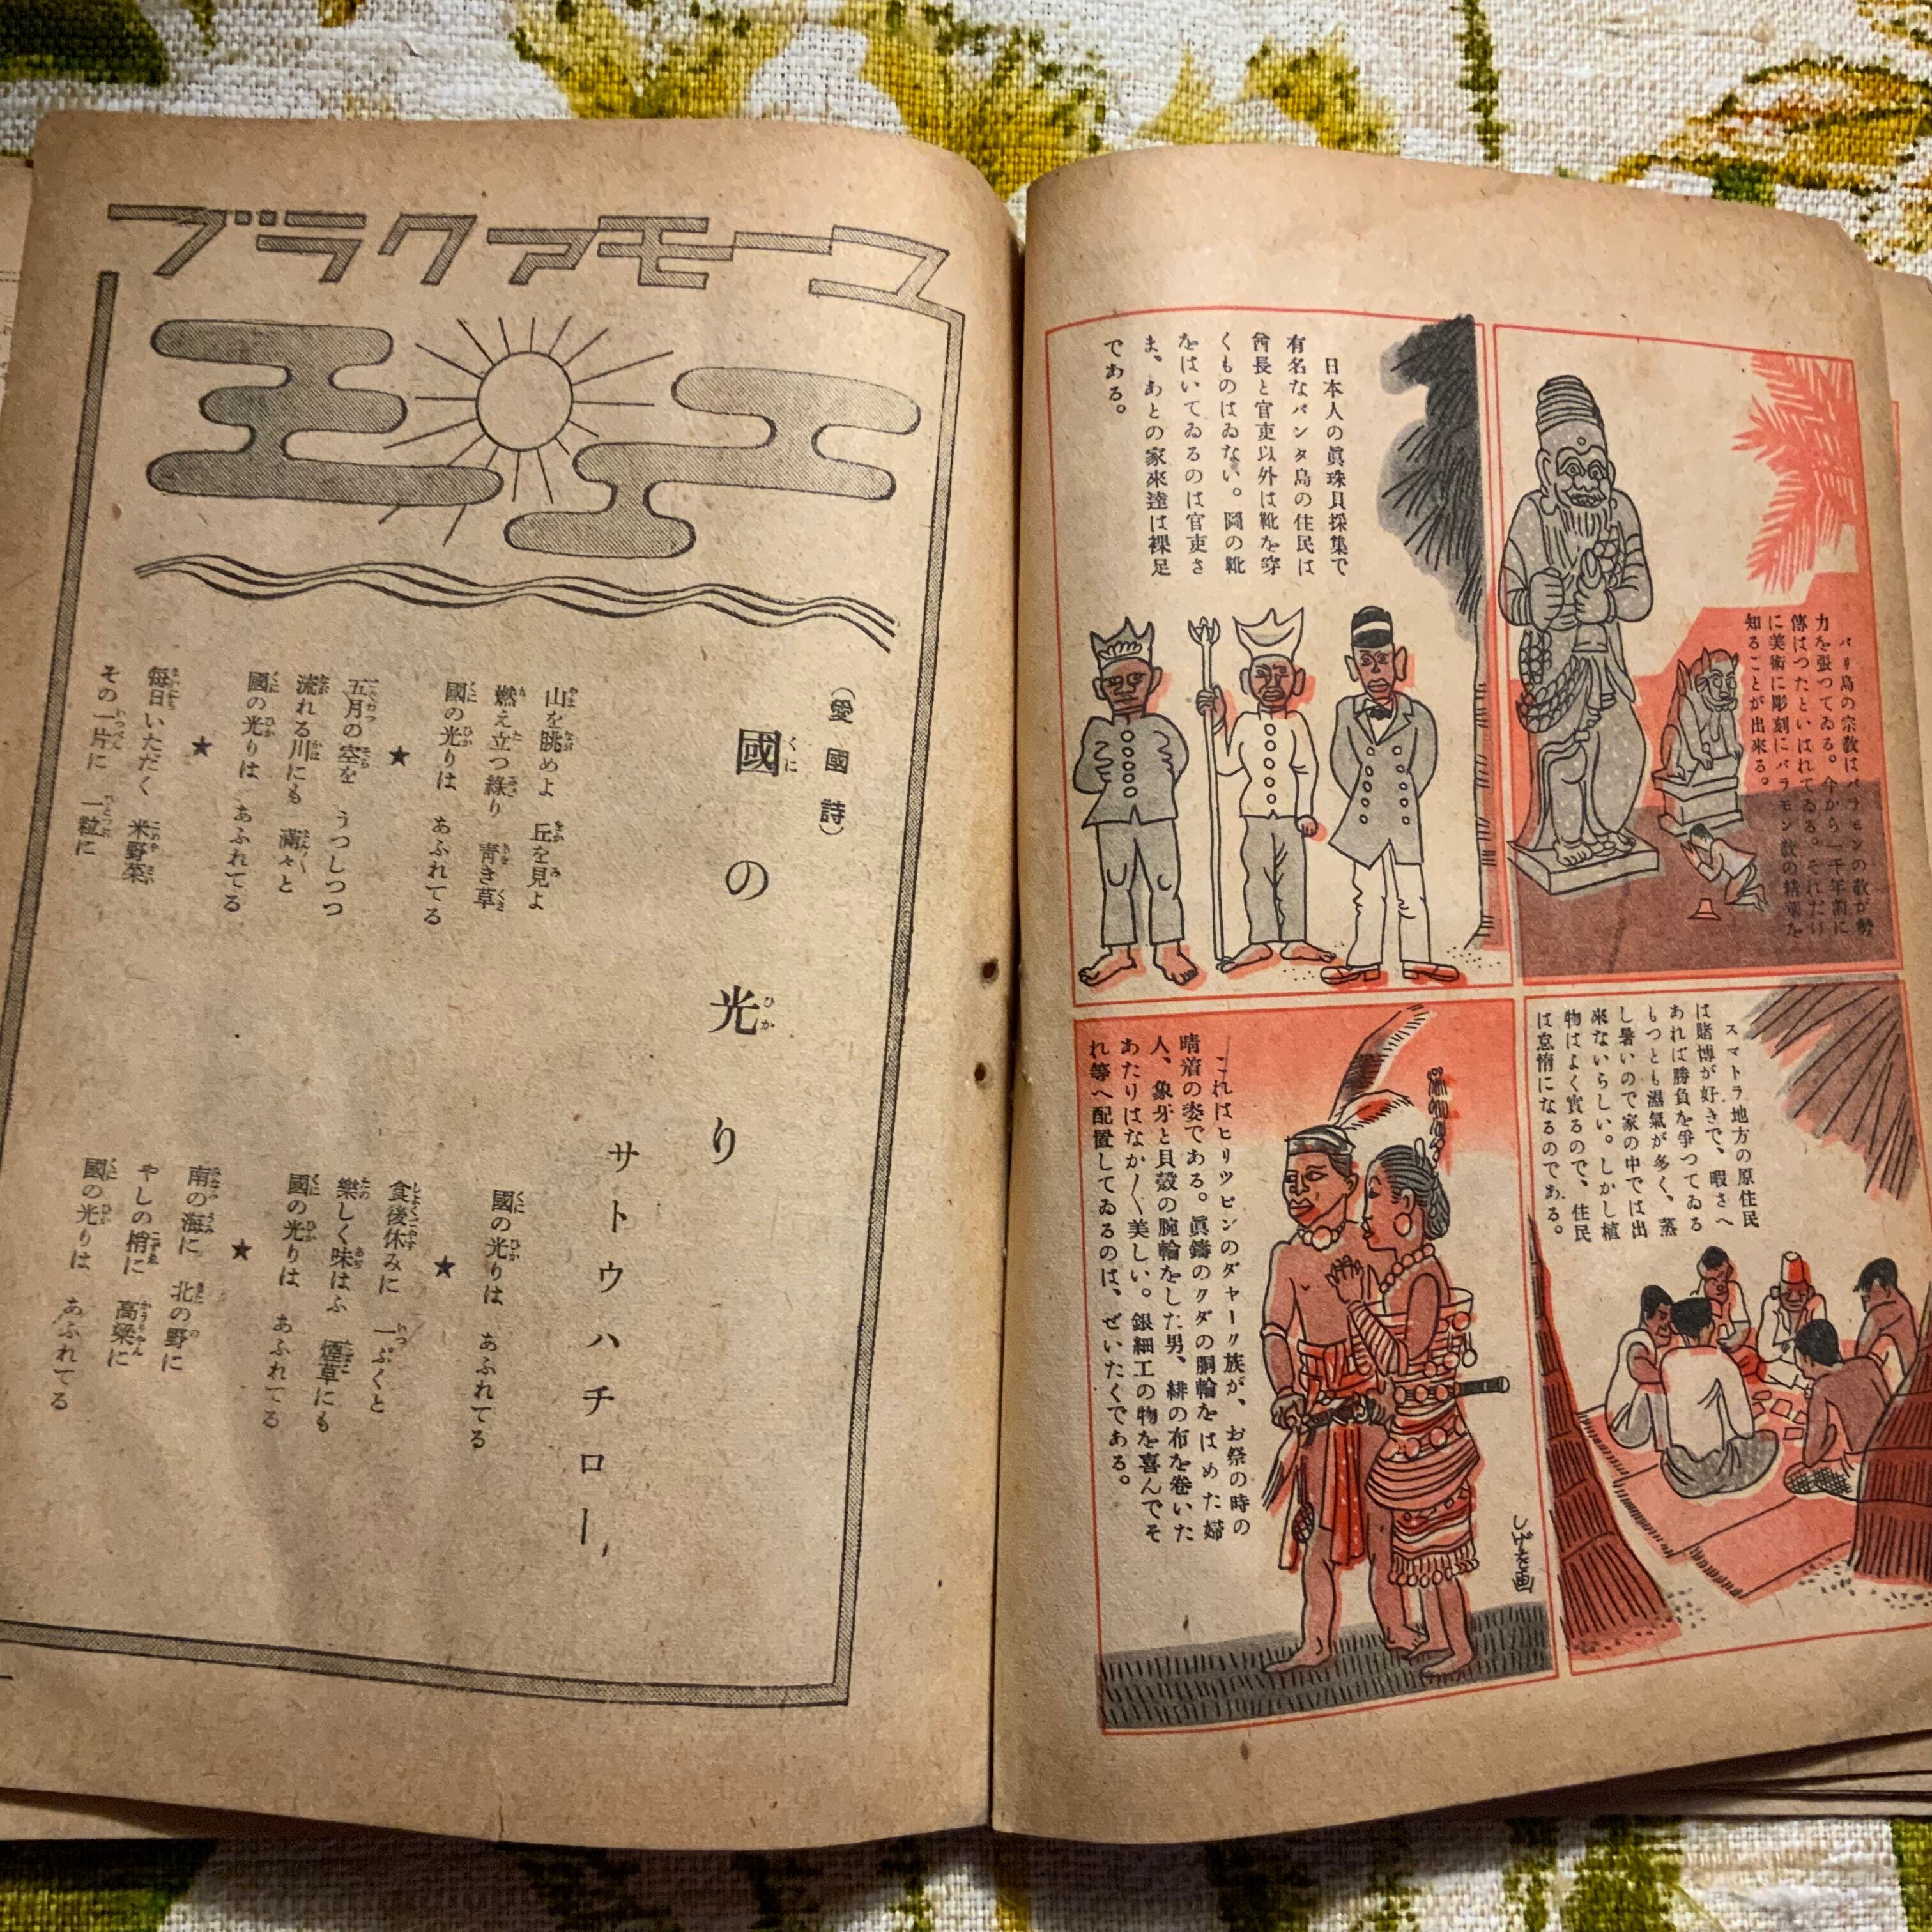 バリ島の宗教はバラモンの教が勢
力を張つてゐる。今から一千年前に
傳はつたといはれてゐる。それだけ
に美術に彫刻にバラモン教の精華を
知ることが出來る。
日本人の眞珠貝採集で
有名なバンタ島の住民は
酋長と官吏以外は靴を穿
くものはゐない。圖の靴
をはいてゐるのは官吏さ
ま、あとの家來達は裸足
である。
スマトラ地方の原住民
は賭博が好きで、暇さへ
あれば勝負を爭つてゐる
もつとも濕氣が多く、蒸
し暑いので家の中では出
來ないらしい。しかし植
物はよく實るので、住民
は怠惰になるのである。
これはヒリツピンのダャーク族が、お祭の時の
晴着の姿である。眞鍮のクダの胴輪をはめた婦
人、象牙と貝殻の腕輪をした男、緋の布を卷いた
あたりはなか〱美しい。銀細工の物を喜んでそ
れ等へ配置してゐるのは、ぜいたくである。
しげを画
ユーモアクラブ
（愛國詩）
國の光り
サトウハチロー
山を眺めよ 丘を見よ
燃え立つ綠り 靑き草
國の光りは あふれてる
★
五月の空を うつしつつ
流れる川にも 滿々と
國の光りは あふれてる
★
每日いただく 米野菜
その一片に 一粒に
國の光りは あふれてる
★
食後休みに 一ぷくと
樂しく味はふ 煙草にも
國の光りは あふれてる
★
南の海に 北の野に
やしの梢に 高粱に
國の光りは あふれてる